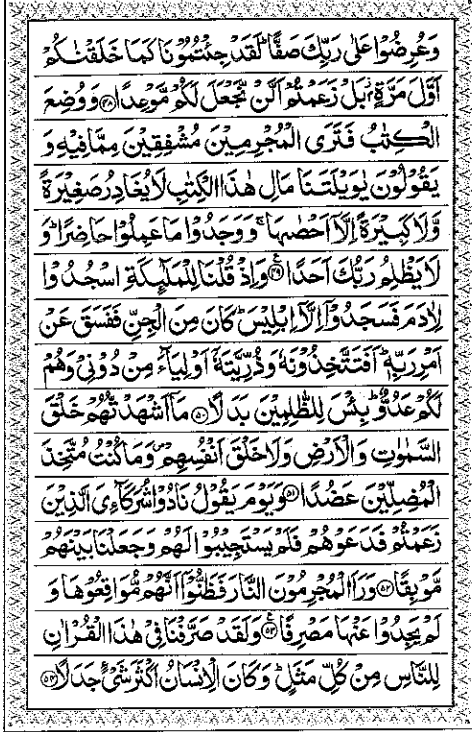 وَعُرِضُوْا عَلٰى رَبِّكَ صَفًّا ؕ لَقَدْ جِئْتُمُوْنَا كَمَا خَلَقْنٰكُمْ
اَوَّلَ مَرَّةٍ ۢ بَلْ زَعَمْتُمْ اَلَّنْ نَّجْعَلَ لَكُمْ مَّوْعِدًا ﴿۴۸﴾ وَ وُضِعَ
الْكِتٰبُ فَتَرَى الْمُجْرِمِيْنَ مُشْفِقِيْنَ مِمَّا فِيْهِ وَ
يَقُوْلُوْنَ يٰوَيْلَتَنَا مَالِ هٰذَا الْكِتٰبِ لَا يُغَادِرُ صَغِيْرَةً
وَّلَا كَبِيْرَةً اِلَّاۤ اَحْصٰىهَا ۚ وَ وَجَدُوْا مَا عَمِلُوْا حَاضِرًا ؕ وَ
لَا يَظْلِمُ رَبُّكَ اَحَدًا ﴿۴۹﴾ وَ اِذْ قُلْنَا لِلْمَلٰٓئِكَةِ اسْجُدُوْا
لِاٰدَمَ فَسَجَدُوْۤا اِلَّاۤ اِبْلِيْسَ ؕ كَانَ مِنَ الْجِنِّ فَفَسَقَ عَنْ
اَمْرِ رَبِّهٖ ؕ اَفَتَتَّخِذُوْنَهٗ وَ ذُرِّيَّتَهٗۤ اَوْلِيَآءَ مِنْ دُوْنِيْ وَهُمْ
لَكُمْ عَدُوٌّ ؕ بِئْسَ لِلظّٰلِمِيْنَ بَدَلًا ﴿۵۰﴾ مَاۤ اَشْهَدْتُّهُمْ خَلْقَ
السَّمٰوٰتِ وَالْاَرْضِ وَلَا خَلْقَ اَنْفُسِهِمْ ۪ وَمَا كُنْتُ مُتَّخِذَ
الْمُضِلِّيْنَ عَضُدًا ﴿۵۱﴾ وَيَوْمَ يَقُوْلُ نَادُوْا شُرَكَآءِيَ الَّذِيْنَ
زَعَمْتُمْ فَدَعَوْهُمْ فَلَمْ يَسْتَجِيْبُوْا لَهُمْ وَجَعَلْنَا بَيْنَهُمْ
مَّوْبِقًا ﴿۵۲﴾ وَرَاَ الْمُجْرِمُوْنَ النَّارَ فَظَنُّوْۤا اَنَّهُمْ مُّوَاقِعُوْهَا وَ
لَمْ يَجِدُوْا عَنْهَا مَصْرِفًا ﴿۵۳﴾ وَلَقَدْ صَرَّفْنَا فِيْ هٰذَا الْقُرْاٰنِ
لِلنَّاسِ مِنْ كُلِّ مَثَلٍ ؕ وَكَانَ الْاِنْسَانُ اَكْثَرَ شَيْءٍ جَدَلًا ﴿۵۴﴾